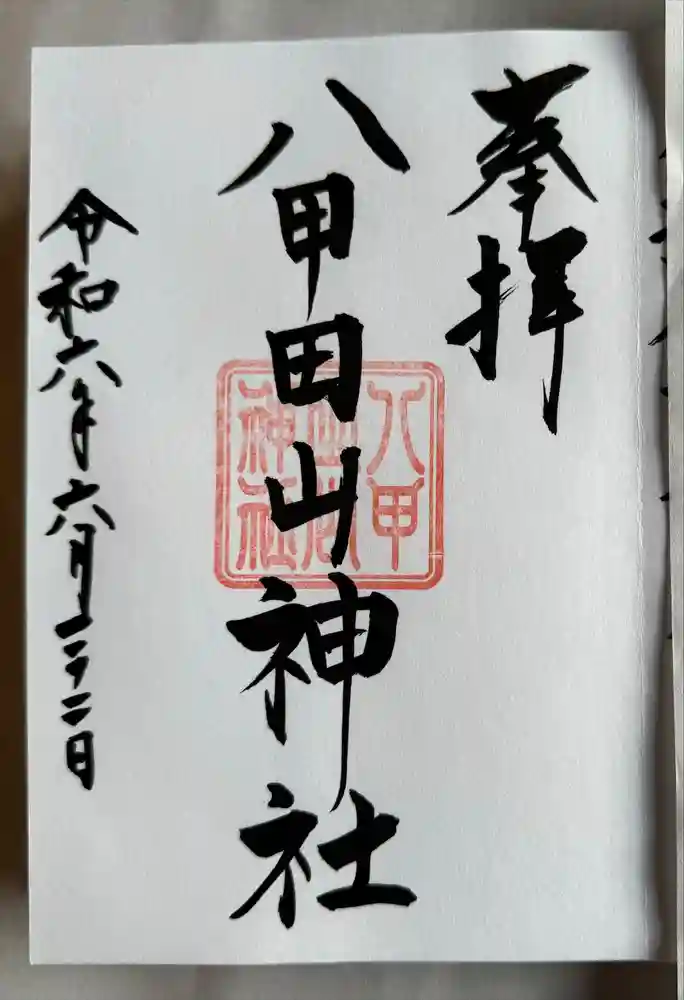 奉拝
八甲田山神社
八甲
神社
令和六年六月二十二日